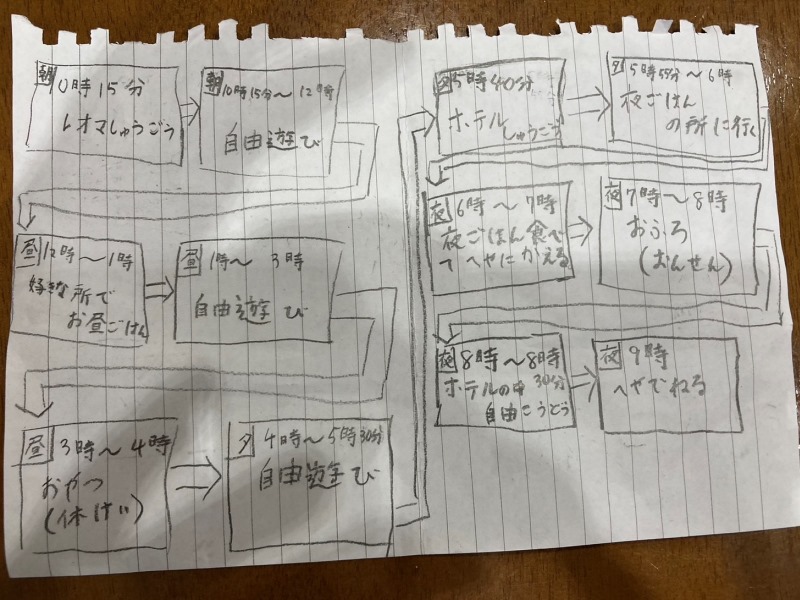 朝
10時15分
レオマしゅうごう
朝 10時15分〜12時
自由遊び
昼 12時〜1時
好きな所で
お昼ごはん
昼 1時〜3時
自由遊び
昼 3時〜4時
おやつ
(休けい)
夕 4時〜5時30分
自由遊び
夕 5時40分
ホテル
しゅうごう
夕 5時55分〜6時
夜ごはん
の所に行く
夜 6時〜7時
夜ごはん食べ
てへやにかえる
夜 7時〜8時
おふろ
(おんせん)
夜 8時〜8時
30分
ホテルの中
自由こうどう
夜 9時
へやでねる